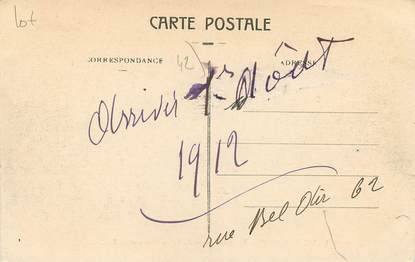 Lot
CARTE POSTALE
CORRESPONDANCE
42
ADRESSE
1er Août
1912
rue Bel Air 62